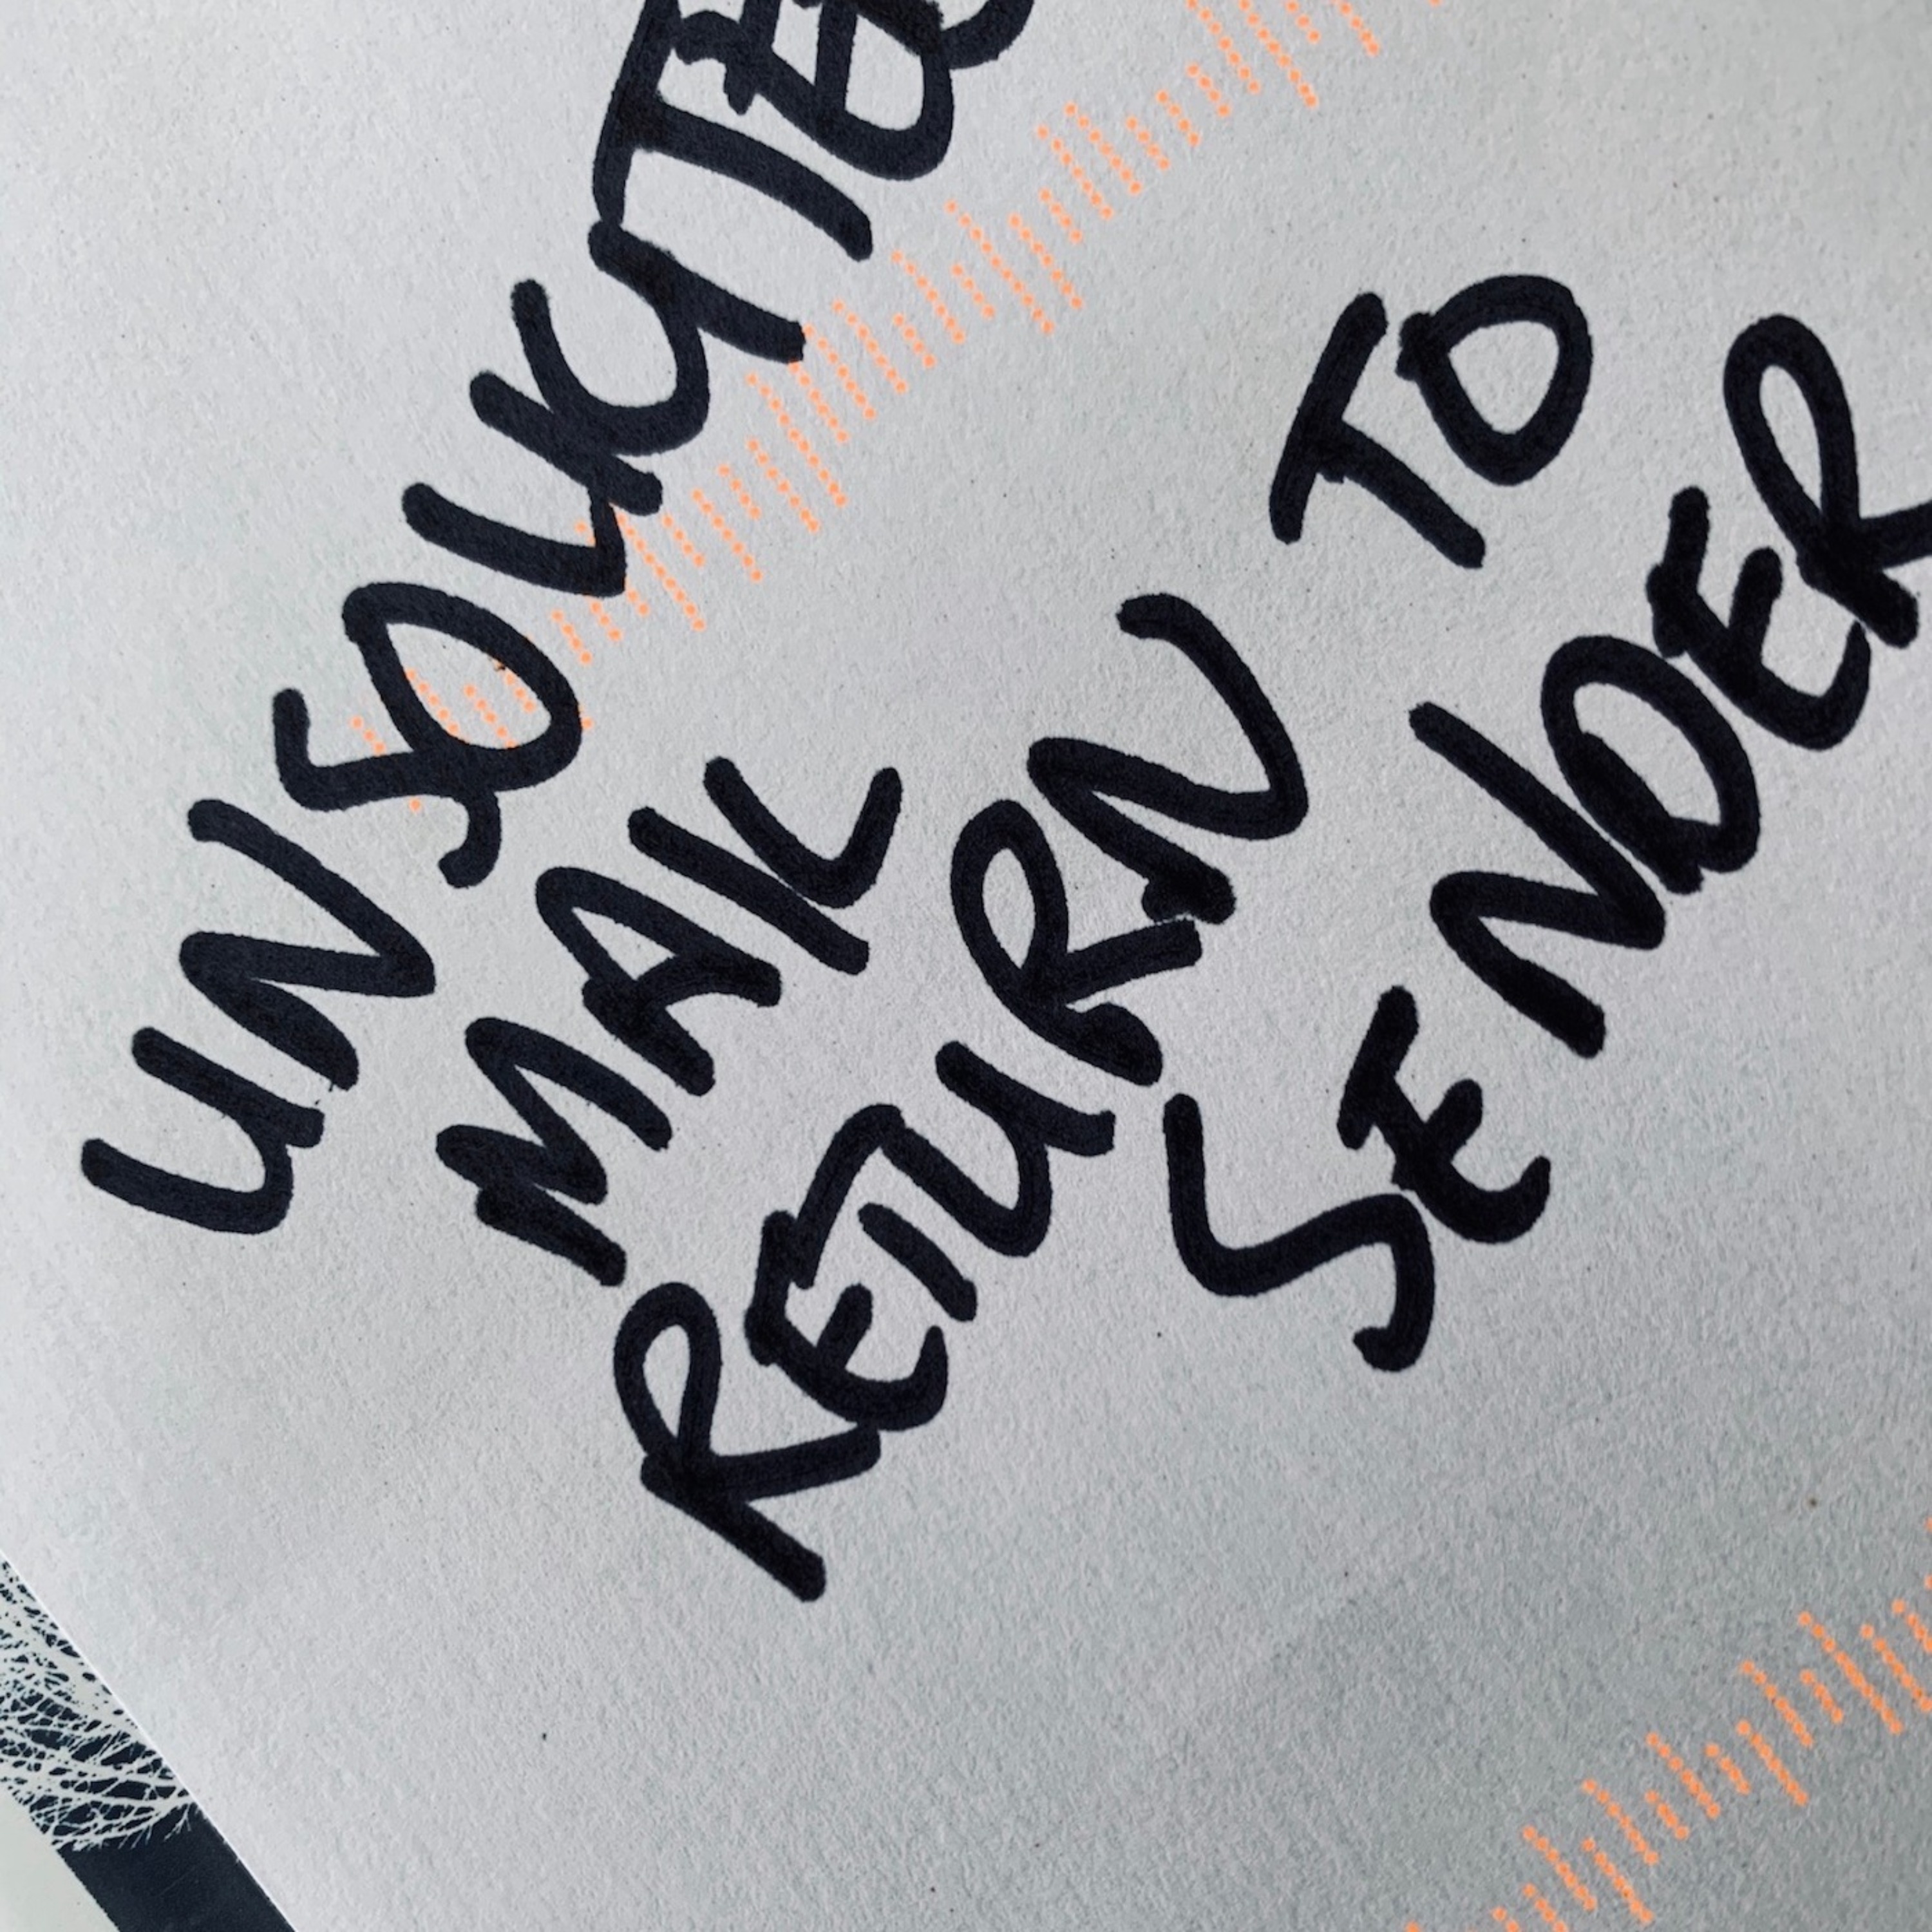 UNSOLICITED
MAIL
RETURN TO
SENDER